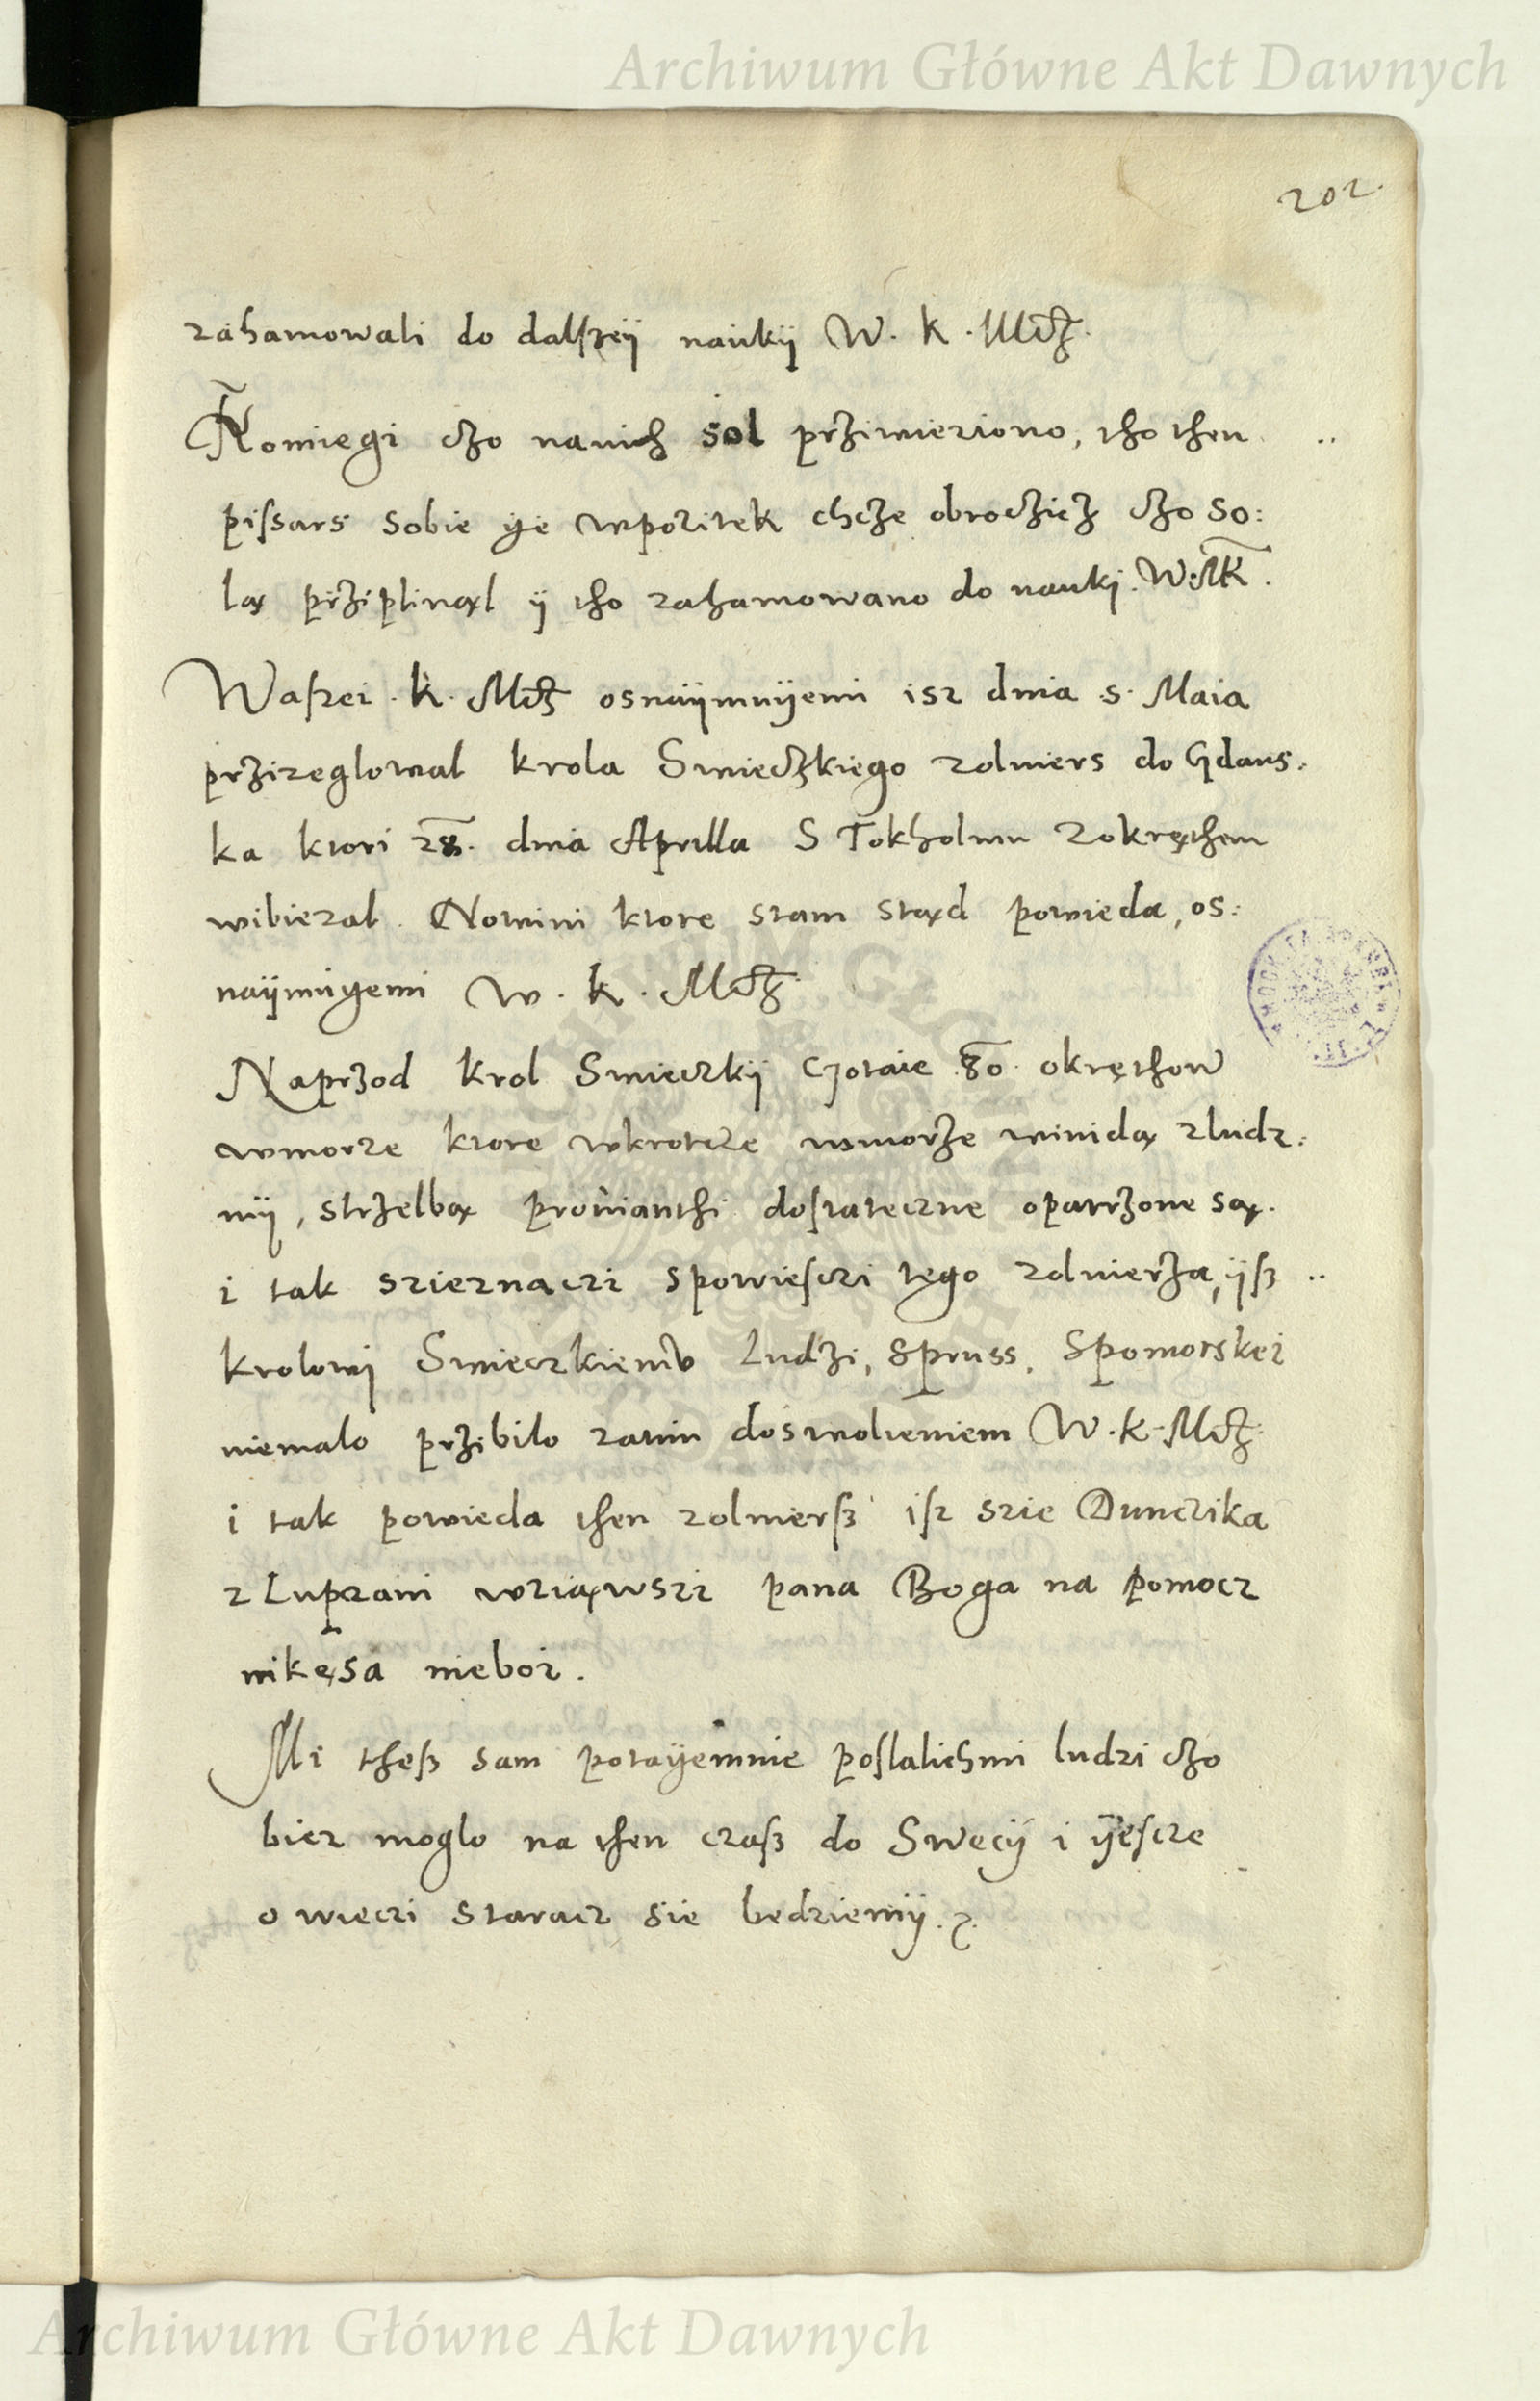 Archiwum Główne Akt Dawnych
202.
zahamowali do dalszeÿ naukÿ W. K. Mczÿ.
Komiegi czo nanich sol prziwieziono, tho then
pissars sobie ÿe wpozitek chcze obrocziez czo so:
lą prziplinął ÿ tho zahamowano do nauki. W. M. K.
Waszei. K. Mcz osnaÿmuÿemi isz dnia .5. Maia
prziżeglowal krola Swieczkiego zolniers do Gdans:
ka ktori 28. dnia Aprilla S Tokholmu zokręthem
wibiezal. Nowini ktore stam stąd powieda, os:
naÿmuÿemi W. K. Mcz.
Naprzod krol Swieczkÿ Gotuie 80. okręthow
wmorze ktore wkrotcze wmorże winidą zludz:
mÿ, strzelbą prowianthi dostateczne opatrzone są.
i tak sziernaczi spowiesczi tego zolnierza, ÿsz
krolowi Swieczkiemu Ludzi, Spruss, Spomorskei
niemalo przibilo zatim doswolieniem W. K. Mcz.
i tak powieda then zolniersz isz szie Dunczika
z Lupczani wziąwszi pana Boga na pomocz
nikęsa nieboi.
Mi thesz sam potaÿemnie poslalichmi ludzi czo
bicz moglo na then czasz do Swecÿ i ÿescze
o wieczi staracz sie bedziemÿ.
Archiwum Główne Akt Dawnych